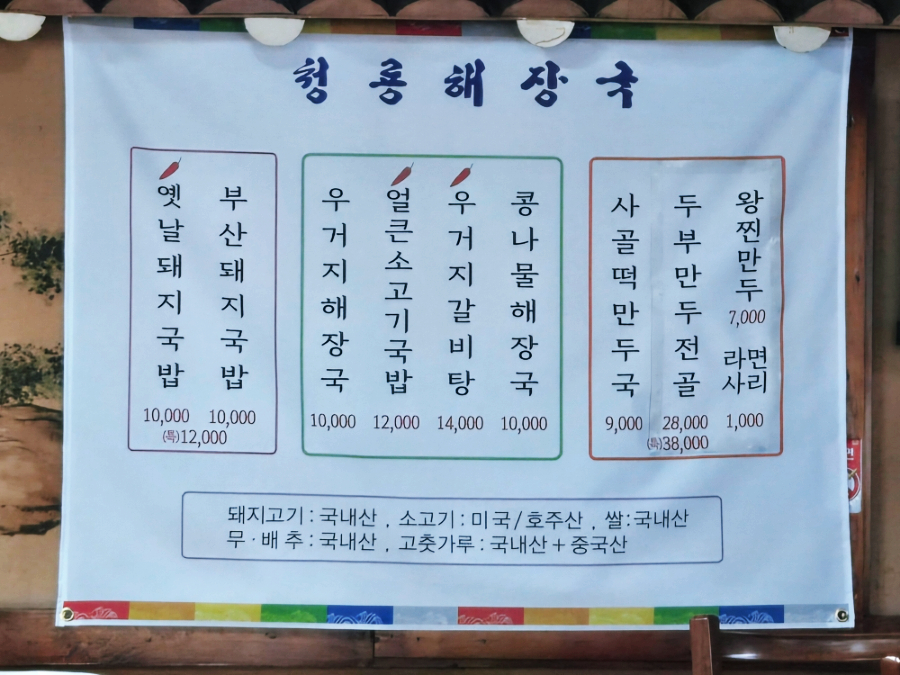 청룡해장국
옛날돼지국밥
10,000
부산돼지국밥
10,000
(특)12,000
우거지해장국
10,000
얼큰소고기국밥
12,000
우거지갈비탕
14,000
콩나물해장국
10,000
사골떡만두국
9,000
두부만두전골
28,000
(특)38,000
왕찐만두
7,000
라면
사리
1,000
돼지고기 : 국내산 , 소고기 : 미국/호주산 , 쌀:국내산
무·배추 : 국내산 , 고춧가루 : 국내산+중국산